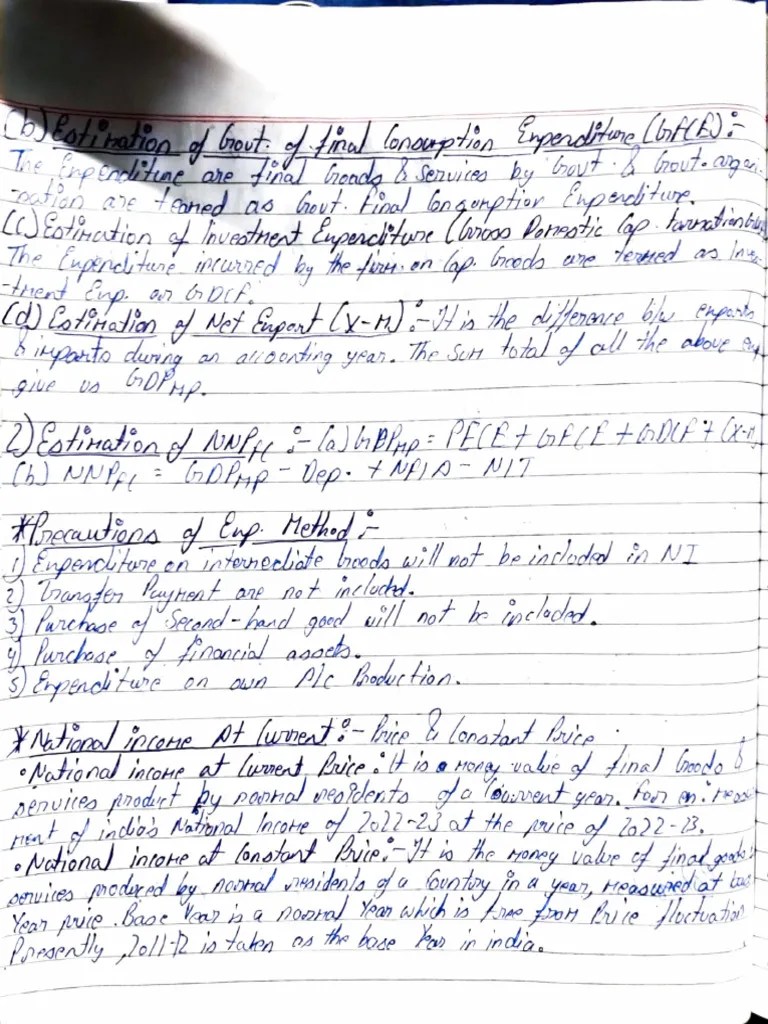 (b) Estimation of Govt. of final Consumption Expenditure (GFCE):-
The Expenditure are final Goods & Services by Govt. & Govt. organi-
-nation are teamed as Govt. Final Consumption Expenditure.
(c) Estimation of Investment Expenditure (Gross Domestic Cap. Formation
The Expenditure incurred by the firm on Cap. Goods are termed as Inve-
-tment Exp. or GDCF.
(d) Estimation of Net Export (X-M):- It is the difference b/w exports
& imports during an accounting year. The Sum total of all the above Exp
give us GDPMP.
2) Estimation of NNPFC :- (a) GDPMP = PFCE + GFCE + GDCF + (X-M)
(b) NNPFC = GDPMP - Dep. + NFIA - NIT
*Precautions of Exp. Method:-
1) Expenditure on intermediate Goods will not be included in NI
2) Transfer Payment are not included.
3) Purchase of Second-hand good will not be included.
4) Purchase of financial assets.
5) Expenditure on own A/c Production.
*National income At Current:- Price & Constant Price
• National income at Current Price: It is a money value of final Goods &
services product by normal residents of a Current year. For ex: Measu
ment of india's National Income of 2022-23 at the price of 2022-23.
• National income at Constant Price:- It is the money value of final goods &
services produced by normal residents of a Country in a year, measured at base
Year price. Base Year is a normal Year which is free from Price fluctuation
Presently, 2011-12 is taken as the base Year in india.